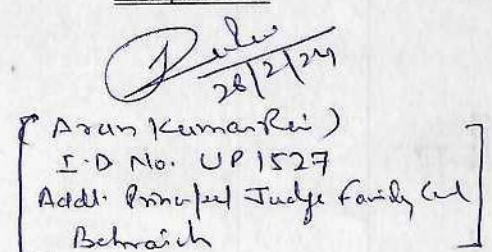 28/2/24
( Arun Kumar Rai )
I.D No. UP 1527
Addl. Principal Judge Family Court
Bahraich